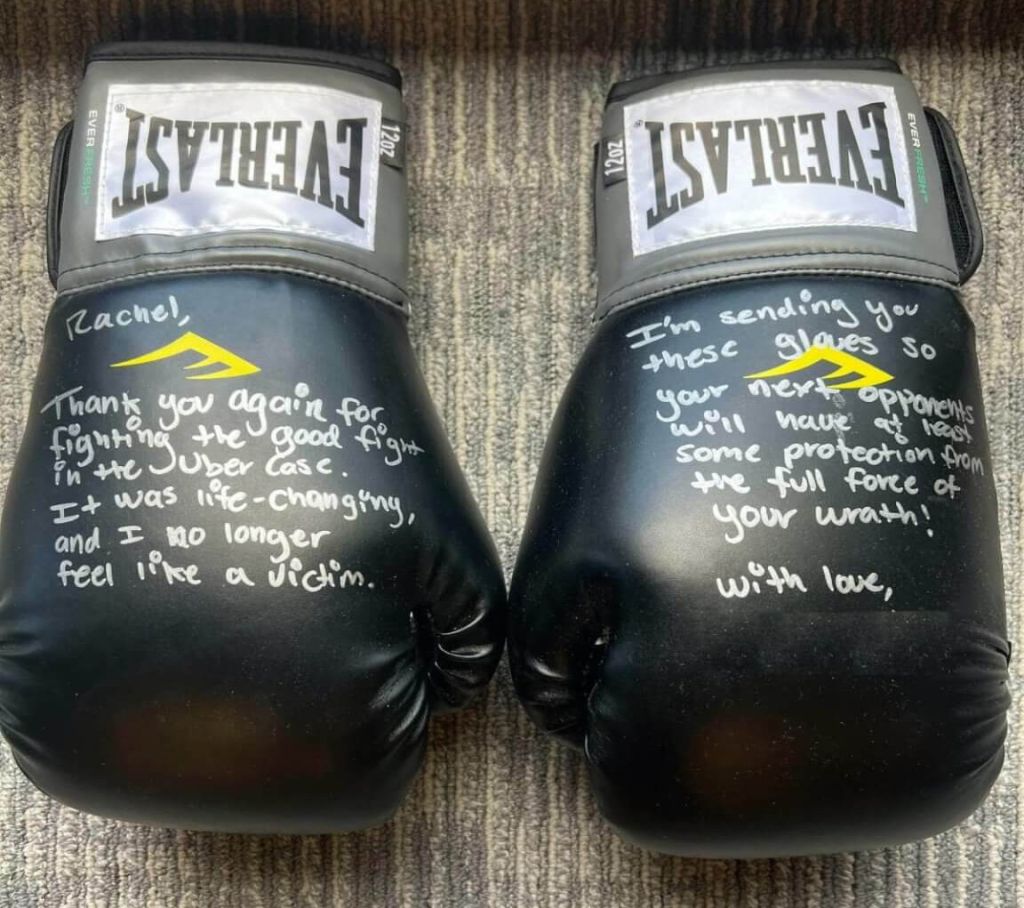 EVERLAST
®
EVER FRESH™
12OZ
Rachel,
Thank you again for
fighting the good fight
in the Uber case.
It was life-changing,
and I no longer
feel like a victim.
EVERLAST
®
12OZ
EVER FRESH™
I'm sending you
these gloves so
your next opponents
will have at least
some protection from
the full force of
your wrath!
with love,